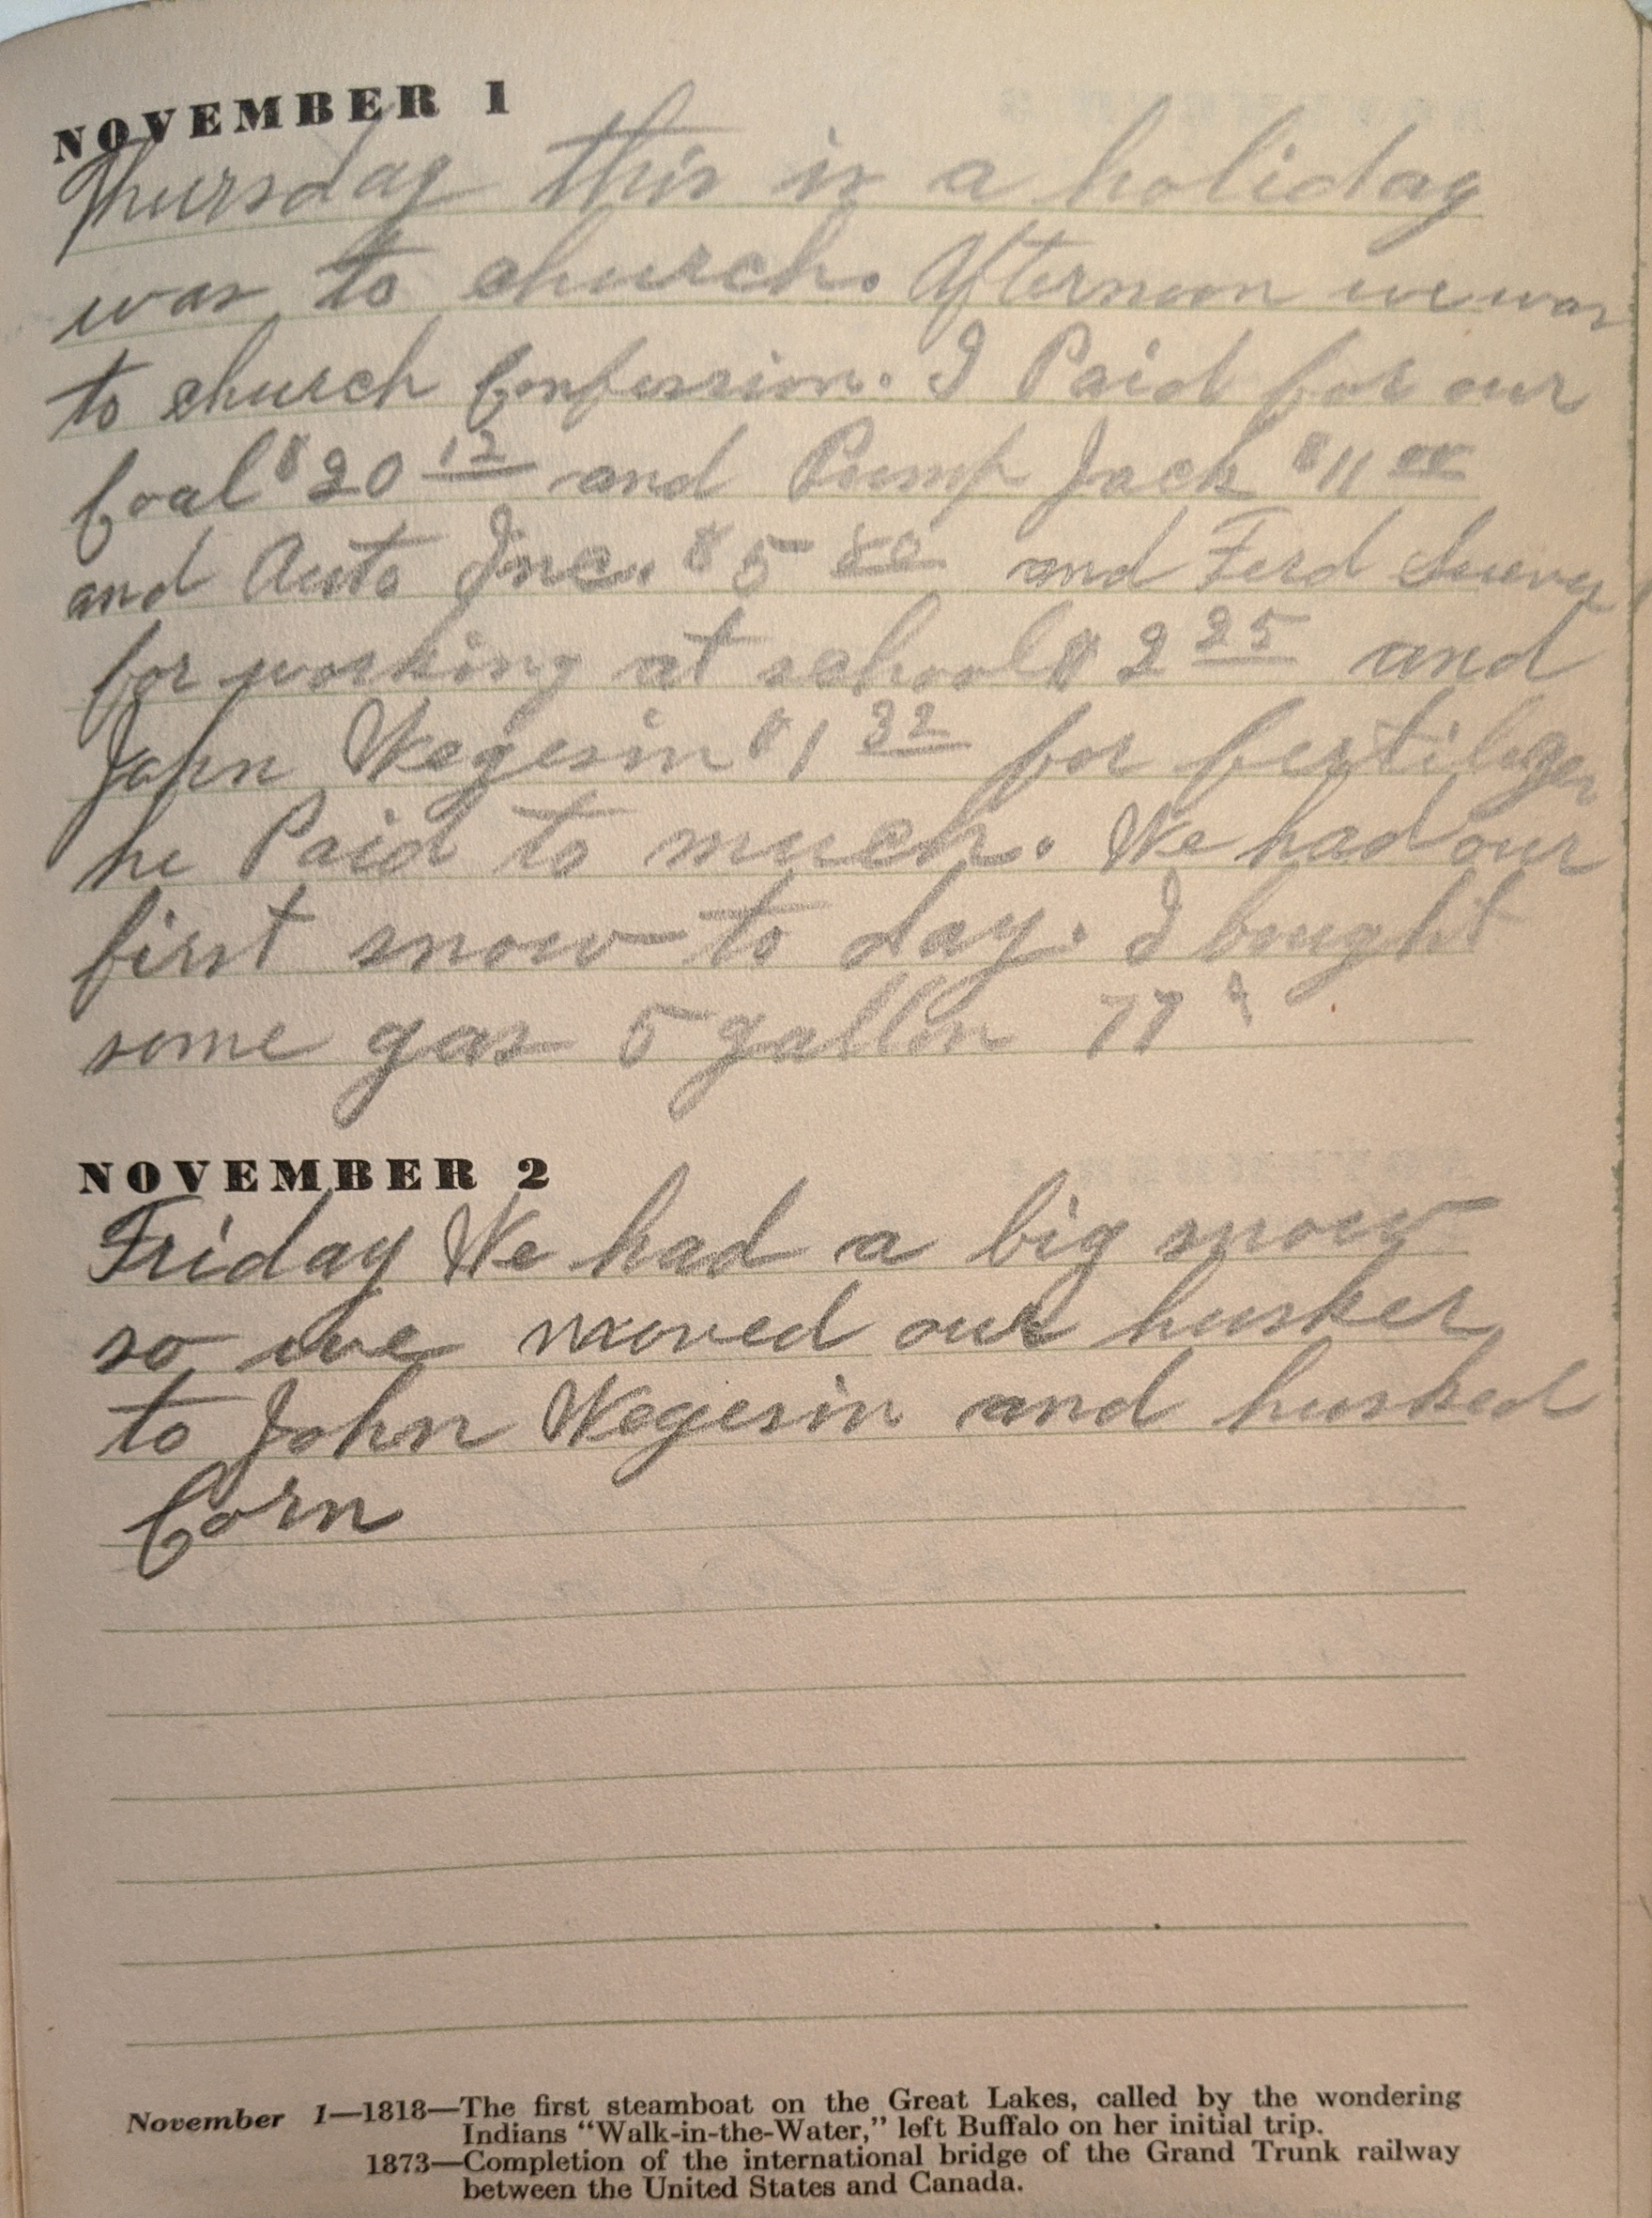 NOVEMBER 1
Thursday this is a holiday
was to church. Afternoon we was
to church Confession. I Paid for our
Coal $20 12 and Pump Jack $11 00
and Auto Inc. $5 80 and Ferd
for working at school $2 25 and
John Wegesin $1 32 for fertilizer
he Paid to much. We had our
first snow to day. I bought
some gas 5 gallon 77 ¢
NOVEMBER 2
Friday We had a big snow
so we moved our husker
to John Wegesin and husked
Corn
November 1—1818—The first steamboat on the Great Lakes, called by the wondering
Indians “Walk-in-the-Water,” left Buffalo on her initial trip.
1873—Completion of the international bridge of the Grand Trunk railway
between the United States and Canada.